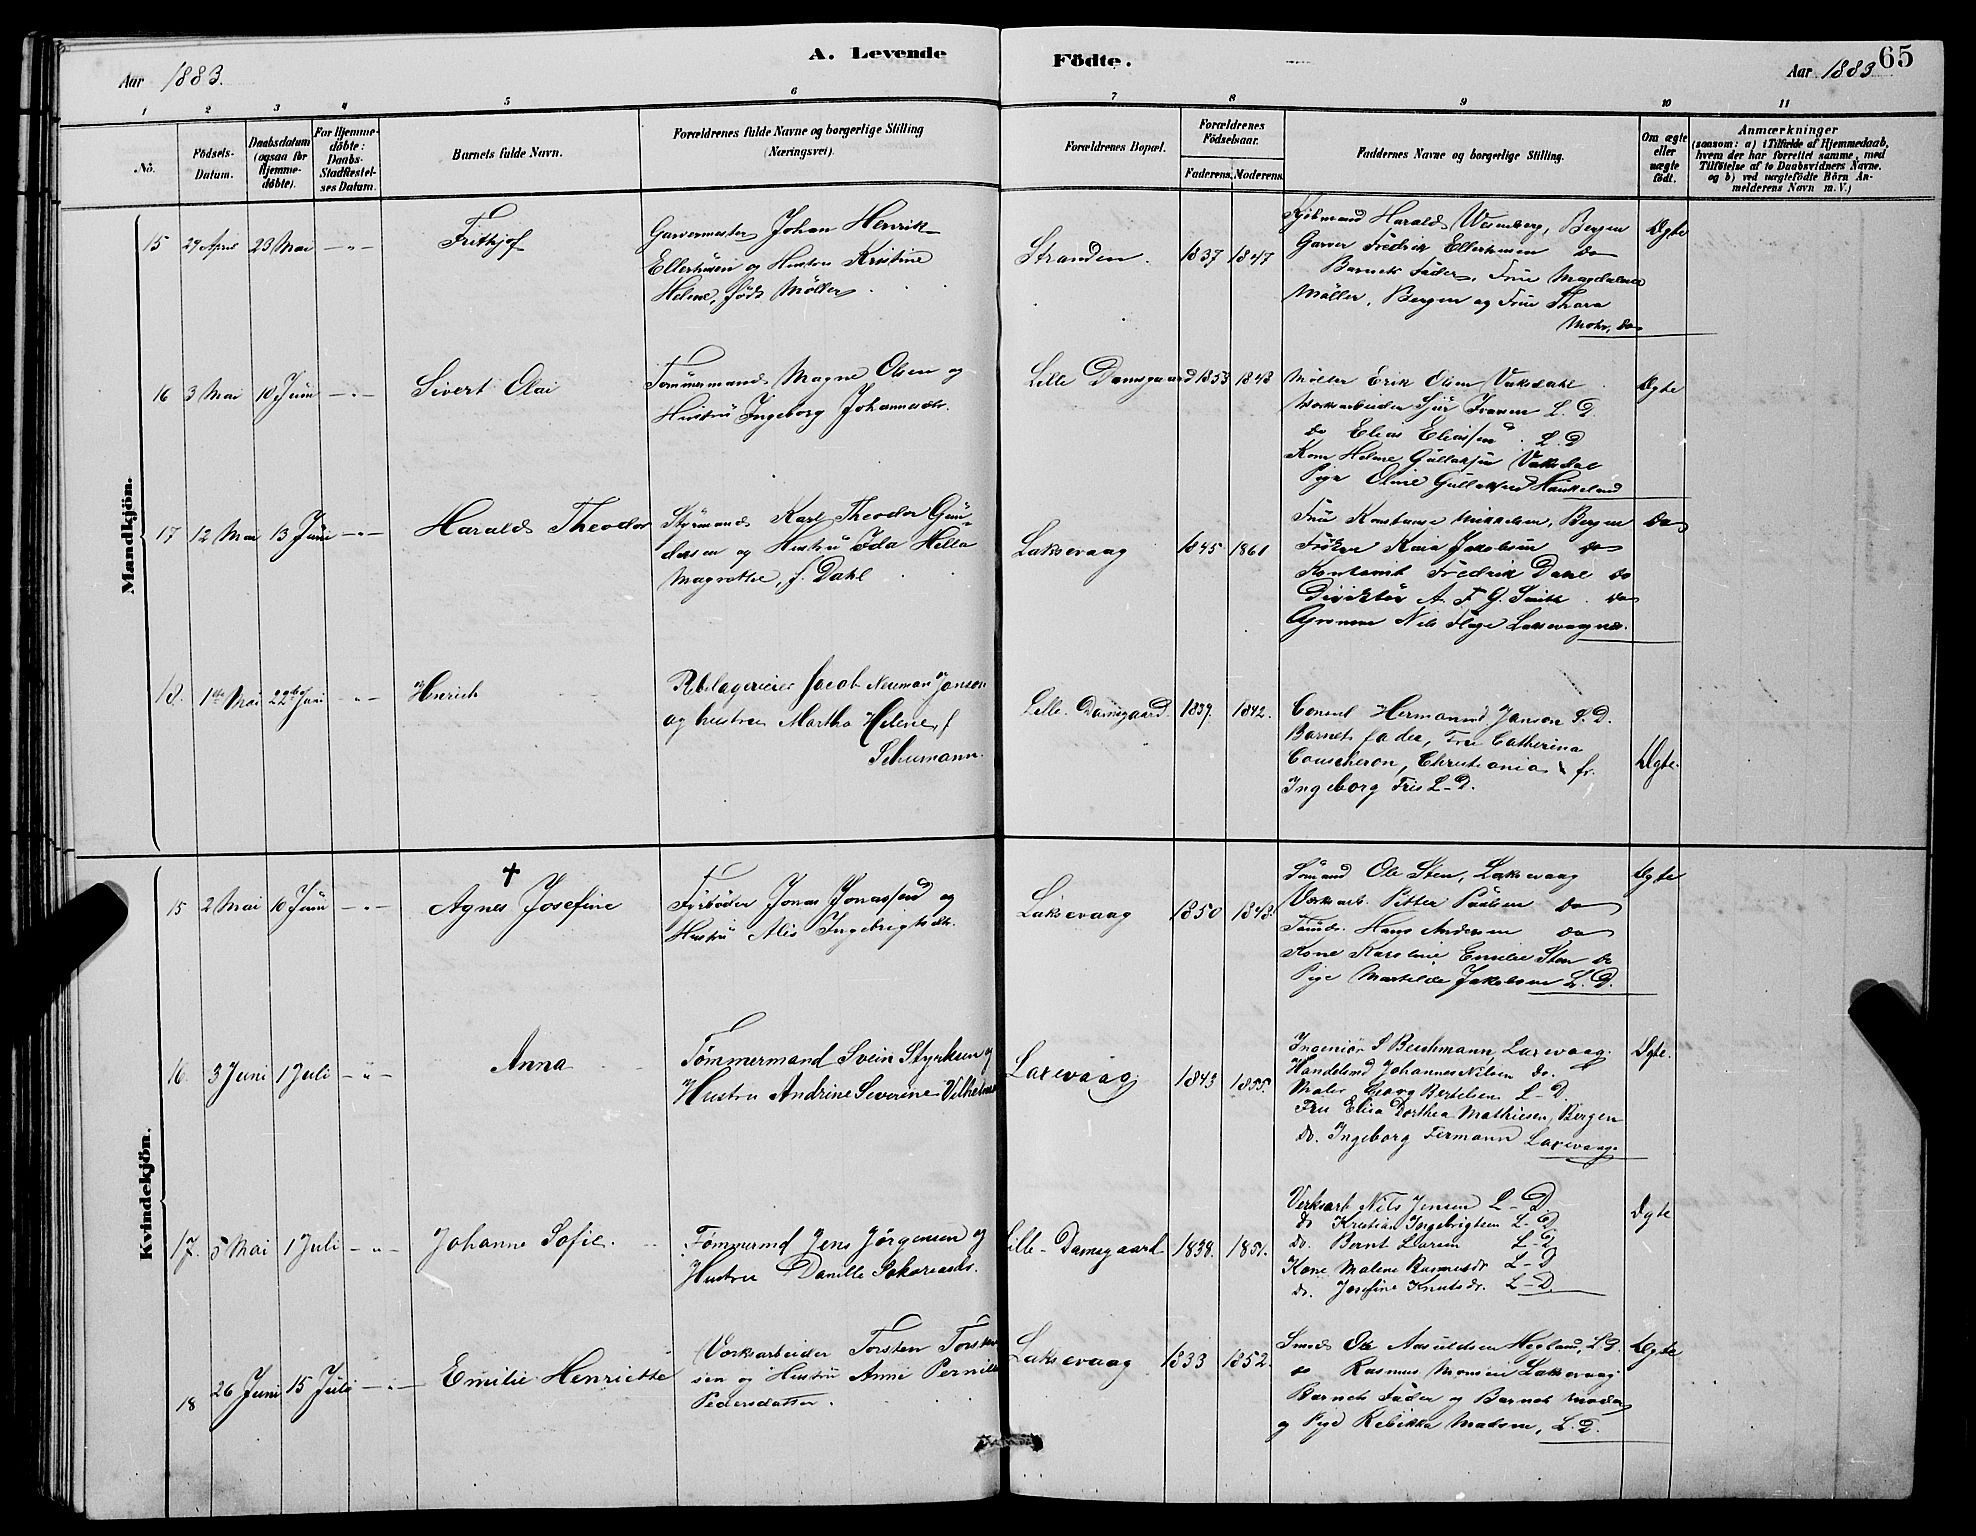 Aar 1883.
A. Levende
Födte.
Aar 1883
65
1
2
3
4
5
6
7
8
9
10
11
No.
Födsels-
Datum.
Daabsdatum
(ogsaa for
Hjemme-
döbte).
For Hjemme-
döbte:
Daabs-
Stadfæstel-
ses Datum.
Barnets fulde Navn.
Forældrenes fulde Navne og borgerlige Stilling
(Næringsvei).
Forældrenes Bopæl.
Forældrenes
Födselsaar.
Faderens.
Moderens.
Faddernes Navne og borgerlige Stilling.
Om ægte
eller
uægte
födt.
Anmærkninger
(saasom: a) i Tilfælde af Hjemmedaab,
hvem der har forrettet samme, med
Tilföielse af to Daabsvidners Navne.
og b) ved uægtefödte Börn An-
melderens Navn m. V.)
Mandkjön.
15
29 April
23 Mai
- " -
Frithjof
Garvermester Johan Henrik
Ellerhusen og Hustru Kristine
Helene, født Møller
Stranden.
1837
1847
Kjøbmand Harald Wesenberg, Bergen
Garver Fredrik Ellerhusen do
Barnets Fader, Frue Magdalene
Møller, Bergen og Frue Thora
Mohr, do
Ægte
16
3 Mai
10 Juni
- " -
Sivert Olai
Tømmermand Magne Olsen og
Hustru Ingeborg Johannesdtr.
Lille Damsgaard
1853
1848
Møller Erik Olsen Vaksdahl
Værksarbeider Sjur Iversen L. D.
do Elias Eliassen L. D
Kone Helene Gullaksen Vaksdal
Pige Oline Gullaksen Haukeland
Ægte
17
12 Mai
13 Juni
- " -
Harald Theodor
Styrmand Karl Theodor Gun-
dersen og Hustru Ida Hella
Magrethe, f. Dahl
Laksevaag
1845
1861
Frue Konstanse Mikkelsen, Bergen
Frøken Kaia Jakobsen do
Kontorist Fredrik Dahl do
Direktør A. F. G. Smith do
Agronom Nils Laksevaagnes.
Do
18.
1ste Mai
22de Juni
- " -
Henrich
Rebslagereier Jacob Neuman Janson
og hustru Martha Helene, f
Schumann.
Lille-Damsgaard.
1839.
1842.
Consul Hermann Janson L. D.
Barnets fader, Fru Catherina
Coucheron, Christiania & fr.
Ingeborg Friis L-D.
Ægte.
Kvindekjön.
15
2 Mai
10 Juni
- " -
✝
Agnes Josefine
Fyrbøder Jonas Jonassen og
Hustru Alis Ingebrigtsdtr.
Laksevaag
1850
1848.
Sømand Ole Sten, Laksevaag
Værksarb. Petter Paulsen do
Hans Andersen do
Kone Karoline Emilie Sten do
Pige Mathilde Jakobsen L. D.
Ægte
16.
3 Juni
1 Juli
- " -
Anna
Tömmermand Svein Styrksen og
Hustru Andrine Severine Vilhelms
Laxevaag
1843
1855.
Ingeniør S Beichmann, Laxevaag.
Handelsmd Johannes Nilsen do.
Maler Georg Bertelsen L-D.
Fru Elisa Dorthea Mathiesen, Bergen
do. Ingeborg Fermann Laxevaag.
Ægte.
17.
5 Mai
1 Juli
- " -
Johanne Sofie.
Tømmermd Jens Jørgensen og
Hustru Danille Sakariasds.
Lille-Damsgaard
1838.
1851.
Verksarb Nils Jensen L-D.
do Kristian Ingebrigtsen L-D.
do. Bernt Larsen L-D.
Kone Malene Rasmusdr. L-D
do. Josefine Knutsdr. L-D.
Ægte
18
26 Juni
15 Juli
- " -
Emilie Henriette
Værksarbeider Torsten Torsten-
sen og Hustru Anne Pernille
Pedersdatter.
Laksevaag
1833
1852.
Smed Ole Asuldsen Hegland, L. D.
do Rasmus Monsen Laksevaag
Barnets Fader og Barnets moder
og Pige Rebekka Madsen, L. D.
Ægte